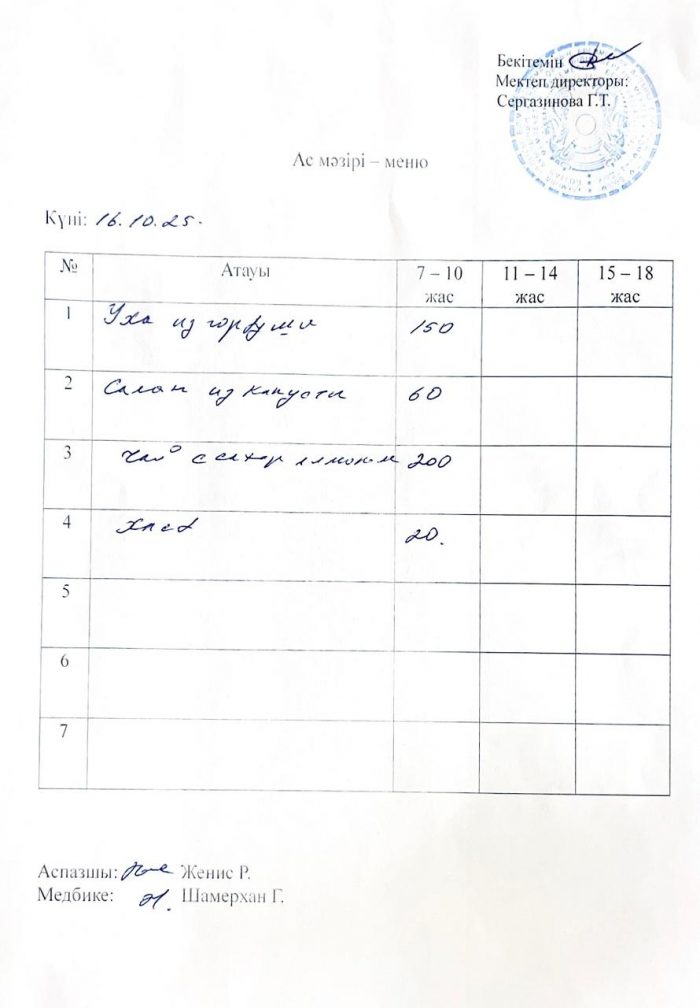 Бекітемін
Мектеп директоры:
Сергазинова Г.Т.
Ас мәзірі – меню
Күні: 16.10.25.
№ Атауы 7 – 10 жас 11 – 14 жас 15 – 18 жас
1 Уха из горбуши 150
2 Салат из капусты 60
3 Чай с сахар лимоном 200
4 Хлеб 20.
5
6
7
Аспазшы: Женис Р.
Медбике: Шамерхан Г.